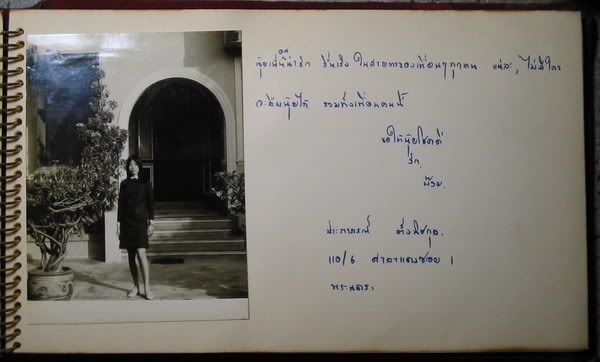 นุ้ยเป็นคนน่ารัก ร่าเริง ในสายตาของเพื่อนๆทุกคน แน่ละ, ไม่มีใคร
จะลืมนุ้ยได้ รวมทั้งเพื่อนคนนี้
ขอให้นุ้ยโชคดี
รัก
ประภาภรณ์
110/6 ศาลาแดงซอย 1
พระนคร.